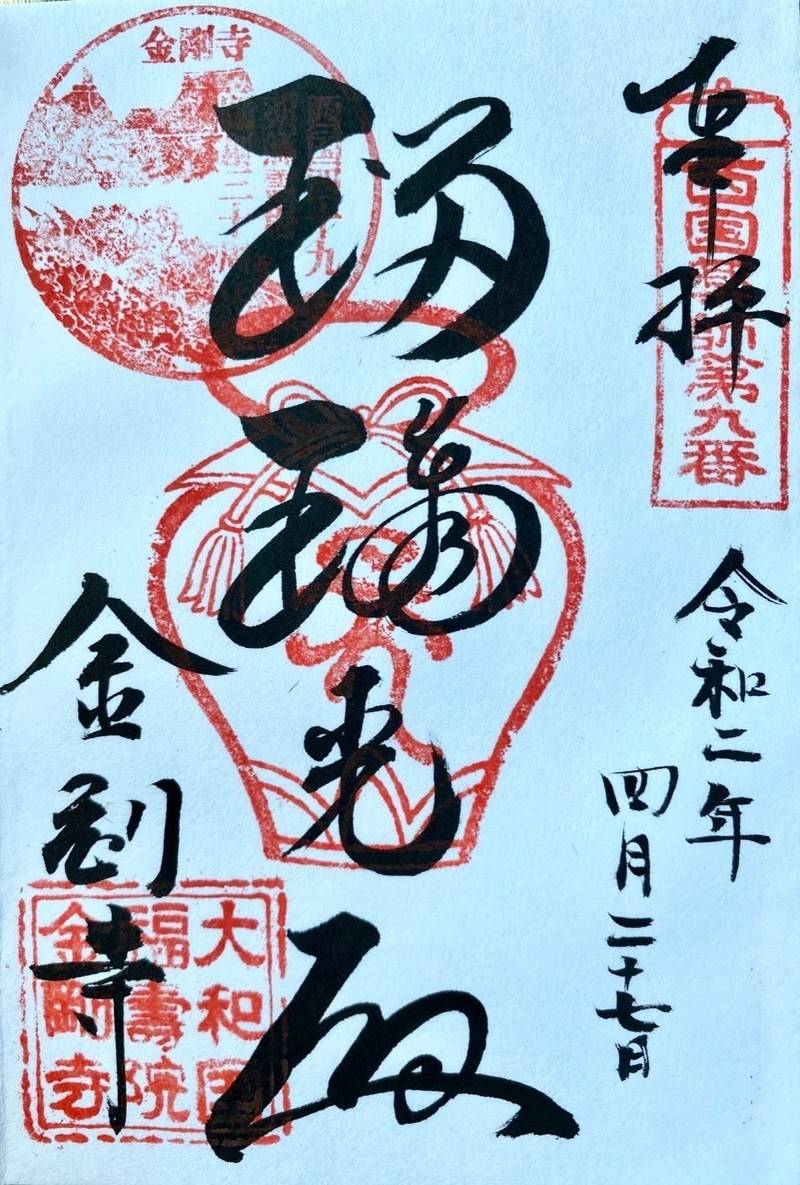 奉拝
西国薬師第九番
令和二年
四月二十七日
瑠璃光殿
金剛寺
金剛寺
大和国
福壽院
金剛寺